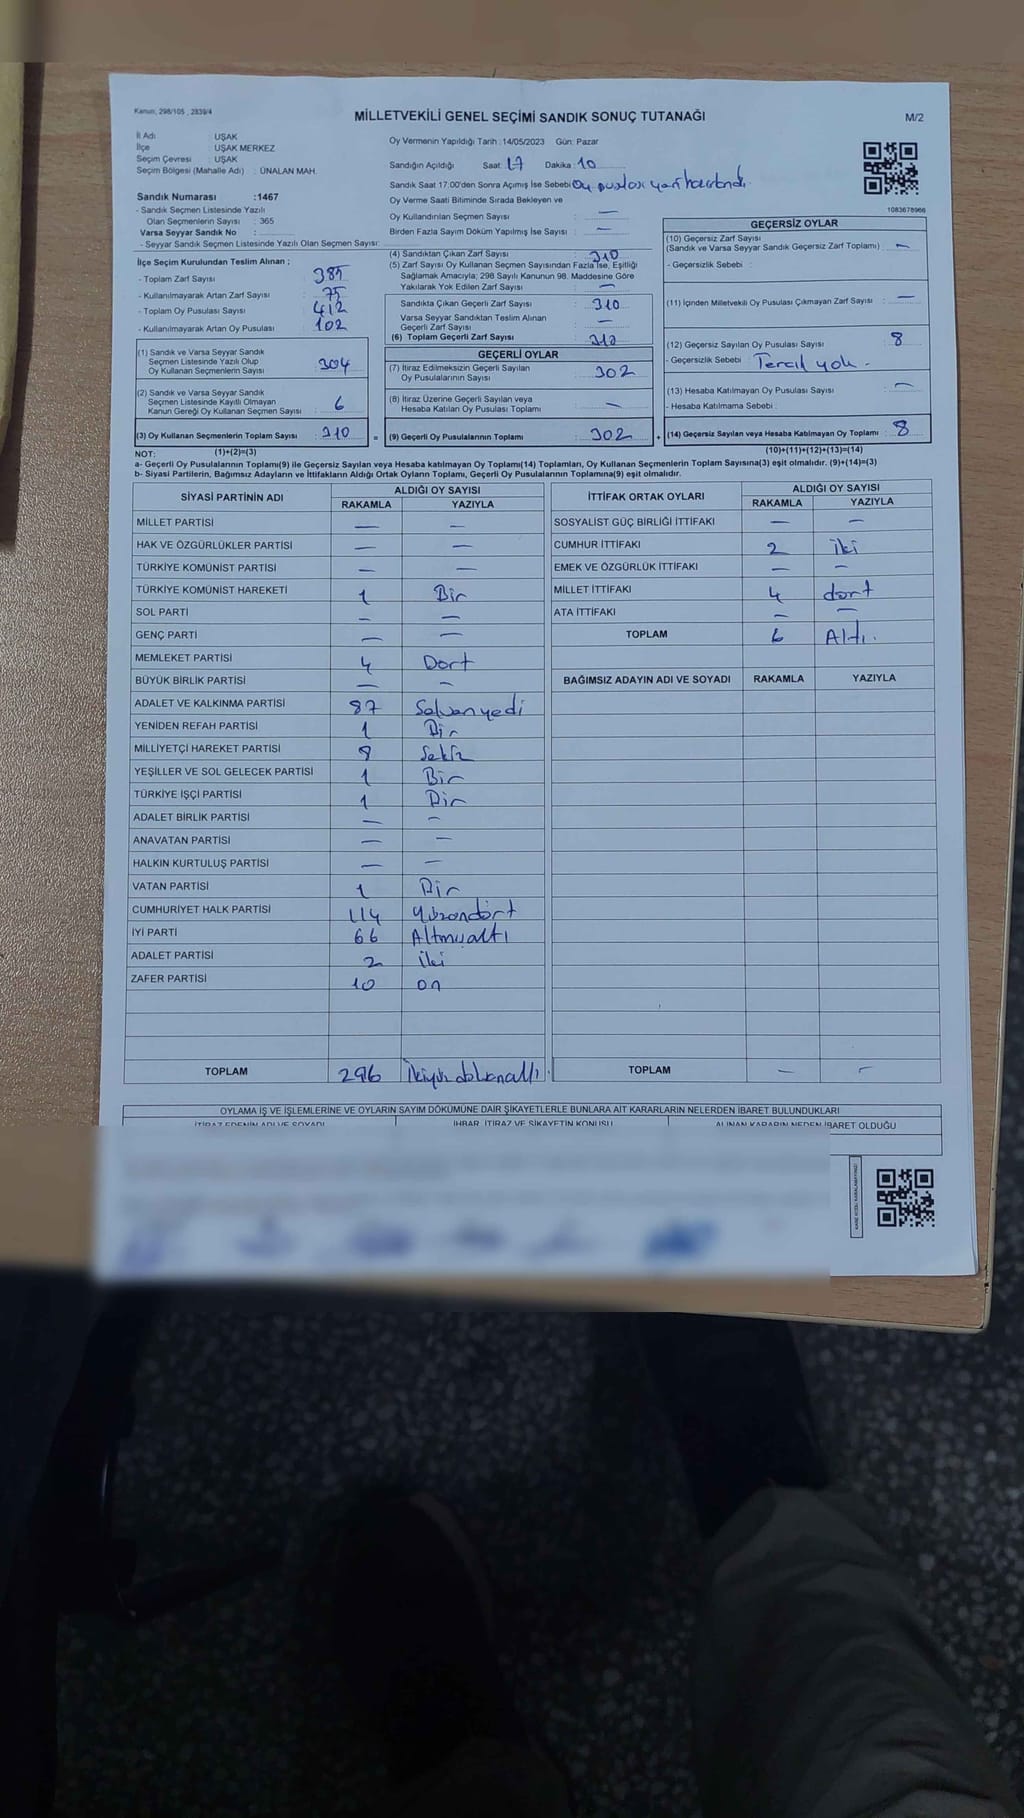 Kanun; 298/105 , 2839/4
MİLLETVEKİLİ GENEL SEÇİMİ SANDIK SONUÇ TUTANAĞI
M/2
İl Adı : UŞAK
İlçe : UŞAK MERKEZ
Seçim Çevresi : UŞAK
Seçim Bölgesi (Mahalle Adı) : ÜNALAN MAH.
Oy Vermenin Yapıldığı Tarih : 14/05/2023 Gün: Pazar
Sandığın Açıldığı Saat: 17 Dakika : 10
Sandık Saat 17:00'den Sonra Açımış İse Sebebi
Oy Verme Saati Bitiminde Sırada Bekleyen ve
Oy Kullandırılan Seçmen Sayısı : —
Birden Fazla Sayım Döküm Yapılmış İse Sayısı : —
1083678966
Sandık Numarası : 1467
- Sandık Seçmen Listesinde Yazılı
Olan Seçmenlerin Sayısı : 365
Varsa Seyyar Sandık No :
- Seyyar Sandık Seçmen Listesinde Yazılı Olan Seçmen Sayısı:
İlçe Seçim Kurulundan Teslim Alınan ;
- Toplam Zarf Sayısı : 385
- Kullanılmayarak Artan Zarf Sayısı : 75
- Toplam Oy Pusulası Sayısı : 412
- Kullanılmayarak Artan Oy Pusulası : 102
(1) Sandık ve Varsa Seyyar Sandık
Seçmen Listesinde Yazılı Olup
Oy Kullanan Seçmenlerin Sayısı : 304
(2) Sandık ve Varsa Seyyar Sandık
Seçmen Listesinde Kayıtlı Olmayan
Kanun Gereği Oy Kullanan Seçmen Sayısı : 6
(3) Oy Kullanan Seçmenlerin Toplam Sayısı : 310
(4) Sandıktan Çıkan Zarf Sayısı : 310
(5) Zarf Sayısı Oy Kullanan Seçmen Sayısından Fazla İse, Eşitliği
Sağlamak Amacıyla; 298 Sayılı Kanunun 98. Maddesine Göre
Yakılarak Yok Edilen Zarf Sayısı : —
Sandıkta Çıkan Geçerli Zarf Sayısı : 310
Varsa Seyyar Sandıktan Teslim Alınan
Geçerli Zarf Sayısı : —
(6) Toplam Geçerli Zarf Sayısı : 310
GEÇERLİ OYLAR
(7) İtiraz Edilmeksizin Geçerli Sayılan
Oy Pusulalarının Sayısı : 302
(8) İtiraz Üzerine Geçerli Sayılan veya
Hesaba Katılan Oy Pusulası Toplamı : —
= (9) Geçerli Oy Pusulalarının Toplamı : 302
GEÇERSİZ OYLAR
(10) Geçersiz Zarf Sayısı
(Sandık ve Varsa Seyyar Sandık Geçersiz Zarf Toplamı) : —
- Geçersizlik Sebebi :
(11) İçinden Milletvekili Oy Pusulası Çıkmayan Zarf Sayısı : —
(12) Geçersiz Sayılan Oy Pusulası Sayısı : 8
- Geçersizlik Sebebi : Tercih yok .
(13) Hesaba Katılmayan Oy Pusulası Sayısı : —
- Hesaba Katılmama Sebebi :
+ (14) Geçersiz Sayılan veya Hesaba Katılmayan Oy Toplamı : 8
NOT: (1)+(2)=(3) (10)+(11)+(12)+(13)=(14)
a- Geçerli Oy Pusulalarının Toplamı(9) ile Geçersiz Sayılan veya Hesaba katılmayan Oy Toplamı(14) Toplamları, Oy Kullanan Seçmenlerin Toplam Sayısına(3) eşit olmalıdır. (9)+(14)=(3)
b- Siyasi Partilerin, Bağımsız Adayların ve İttifakların Aldığı Ortak Oyların Toplamı, Geçerli Oy Pusulalarının Toplamına(9) eşit olmalıdır.
SİYASİ PARTİNİN ADI ALDIĞI OY SAYISI
RAKAMLA YAZIYLA
MİLLET PARTİSİ — —
HAK VE ÖZGÜRLÜKLER PARTİSİ — —
TÜRKİYE KOMÜNİST PARTİSİ — —
TÜRKİYE KOMÜNİST HAREKETİ 1 Bir
SOL PARTİ — —
GENÇ PARTİ — —
MEMLEKET PARTİSİ 4 Dort
BÜYÜK BİRLİK PARTİSİ — —
ADALET VE KALKINMA PARTİSİ 87 Seksenyedi
YENİDEN REFAH PARTİSİ 1 Bir
MİLLİYETÇİ HAREKET PARTİSİ 8 Sekiz
YEŞİLLER VE SOL GELECEK PARTİSİ 1 Bir
TÜRKİYE İŞÇİ PARTİSİ 1 Bir
ADALET BİRLİK PARTİSİ — —
ANAVATAN PARTİSİ — —
HALKIN KURTULUŞ PARTİSİ — —
VATAN PARTİSİ 1 Bir
CUMHURİYET HALK PARTİSİ 114 Yüzondört
İYİ PARTİ 66 Altmışaltı
ADALET PARTİSİ 2 iki
ZAFER PARTİSİ 10 on
TOPLAM 296 İkiyüzdoksanaltı.
İTTİFAK ORTAK OYLARI ALDIĞI OY SAYISI
RAKAMLA YAZIYLA
SOSYALİST GÜÇ BİRLİĞİ İTTİFAKI — —
CUMHUR İTTİFAKI 2 iki
EMEK VE ÖZGÜRLÜK İTTİFAKI — —
MİLLET İTTİFAKI 4 dort
ATA İTTİFAKI — —
TOPLAM 6 Altı.
BAĞIMSIZ ADAYIN ADI VE SOYADI RAKAMLA YAZIYLA
TOPLAM — —
OYLAMA İŞ VE İŞLEMLERİNE VE OYLARIN SAYIM DÖKÜMÜNE DAİR ŞİKAYETLERLE BUNLARA AİT KARARLARIN NELERDEN İBARET BULUNDUKLARI
İTİRAZ EDENİN ADI VE SOYADI İHBAR, İTİRAZ VE ŞİKAYETİN KONUSU ALINAN KARARIN NEDEN İBARET OLDUĞU